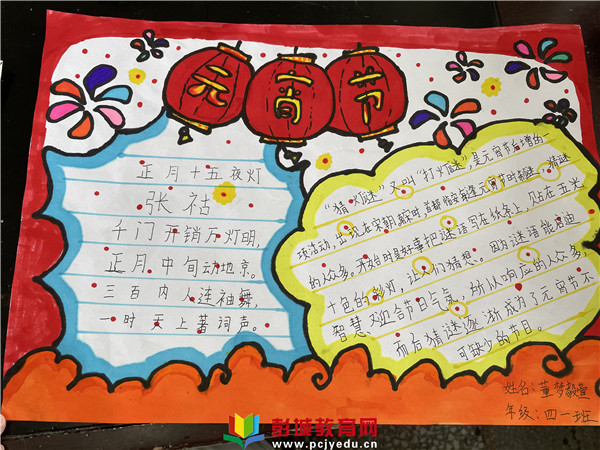 元宵节
正月十五夜灯
张祜
千门开锁万灯明,
正月中旬动地京。
三百内人连袖舞,
一时天上著词声。
“猜灯谜”又叫“打灯谜”,是元宵节后增的一
项活动,出现在宋朝。
的众多。开始时是好事把谜语写在纸条上,贴在五光
十色的彩灯,让人们猜想。因为谜语能启迪
智慧又迎合节日气氛,所以响应的人众多,
而后猜谜逐渐成为了元宵节不
可缺少的节目。
姓名:董梦毅萱
年级:四一班
彭城教育网
www.pcjyedu.cn